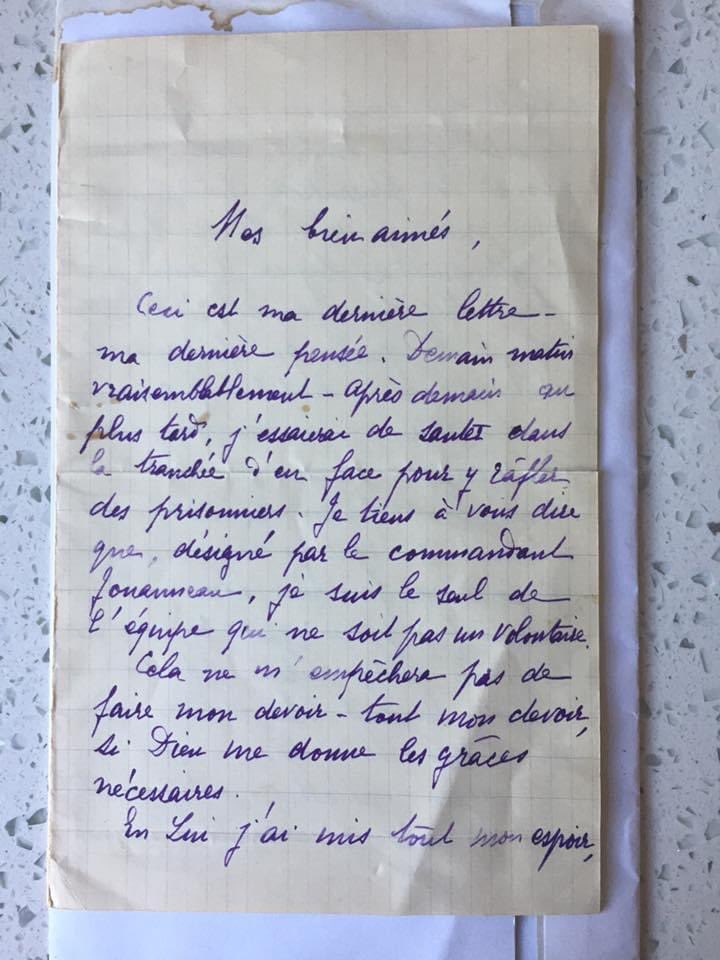 Mes bien aimés,
Ceci est ma dernière lettre -
ma dernière pensée. Demain matin
vraisemblablement - après demain au
plus tard, j'essaierai de sauter dans
la tranchée d'en face pour y râfler
des prisonniers. Je tiens à vous dire
que, désigné par le commandant
Jouanneau, je suis le seul de
l'équipe qui ne soit pas un volontaire.
Cela ne m'empêchera pas de
faire mon devoir - tout mon devoir,
si Dieu me donne les grâces
nécessaires.
En Lui j'ai mis tout mon espoir,